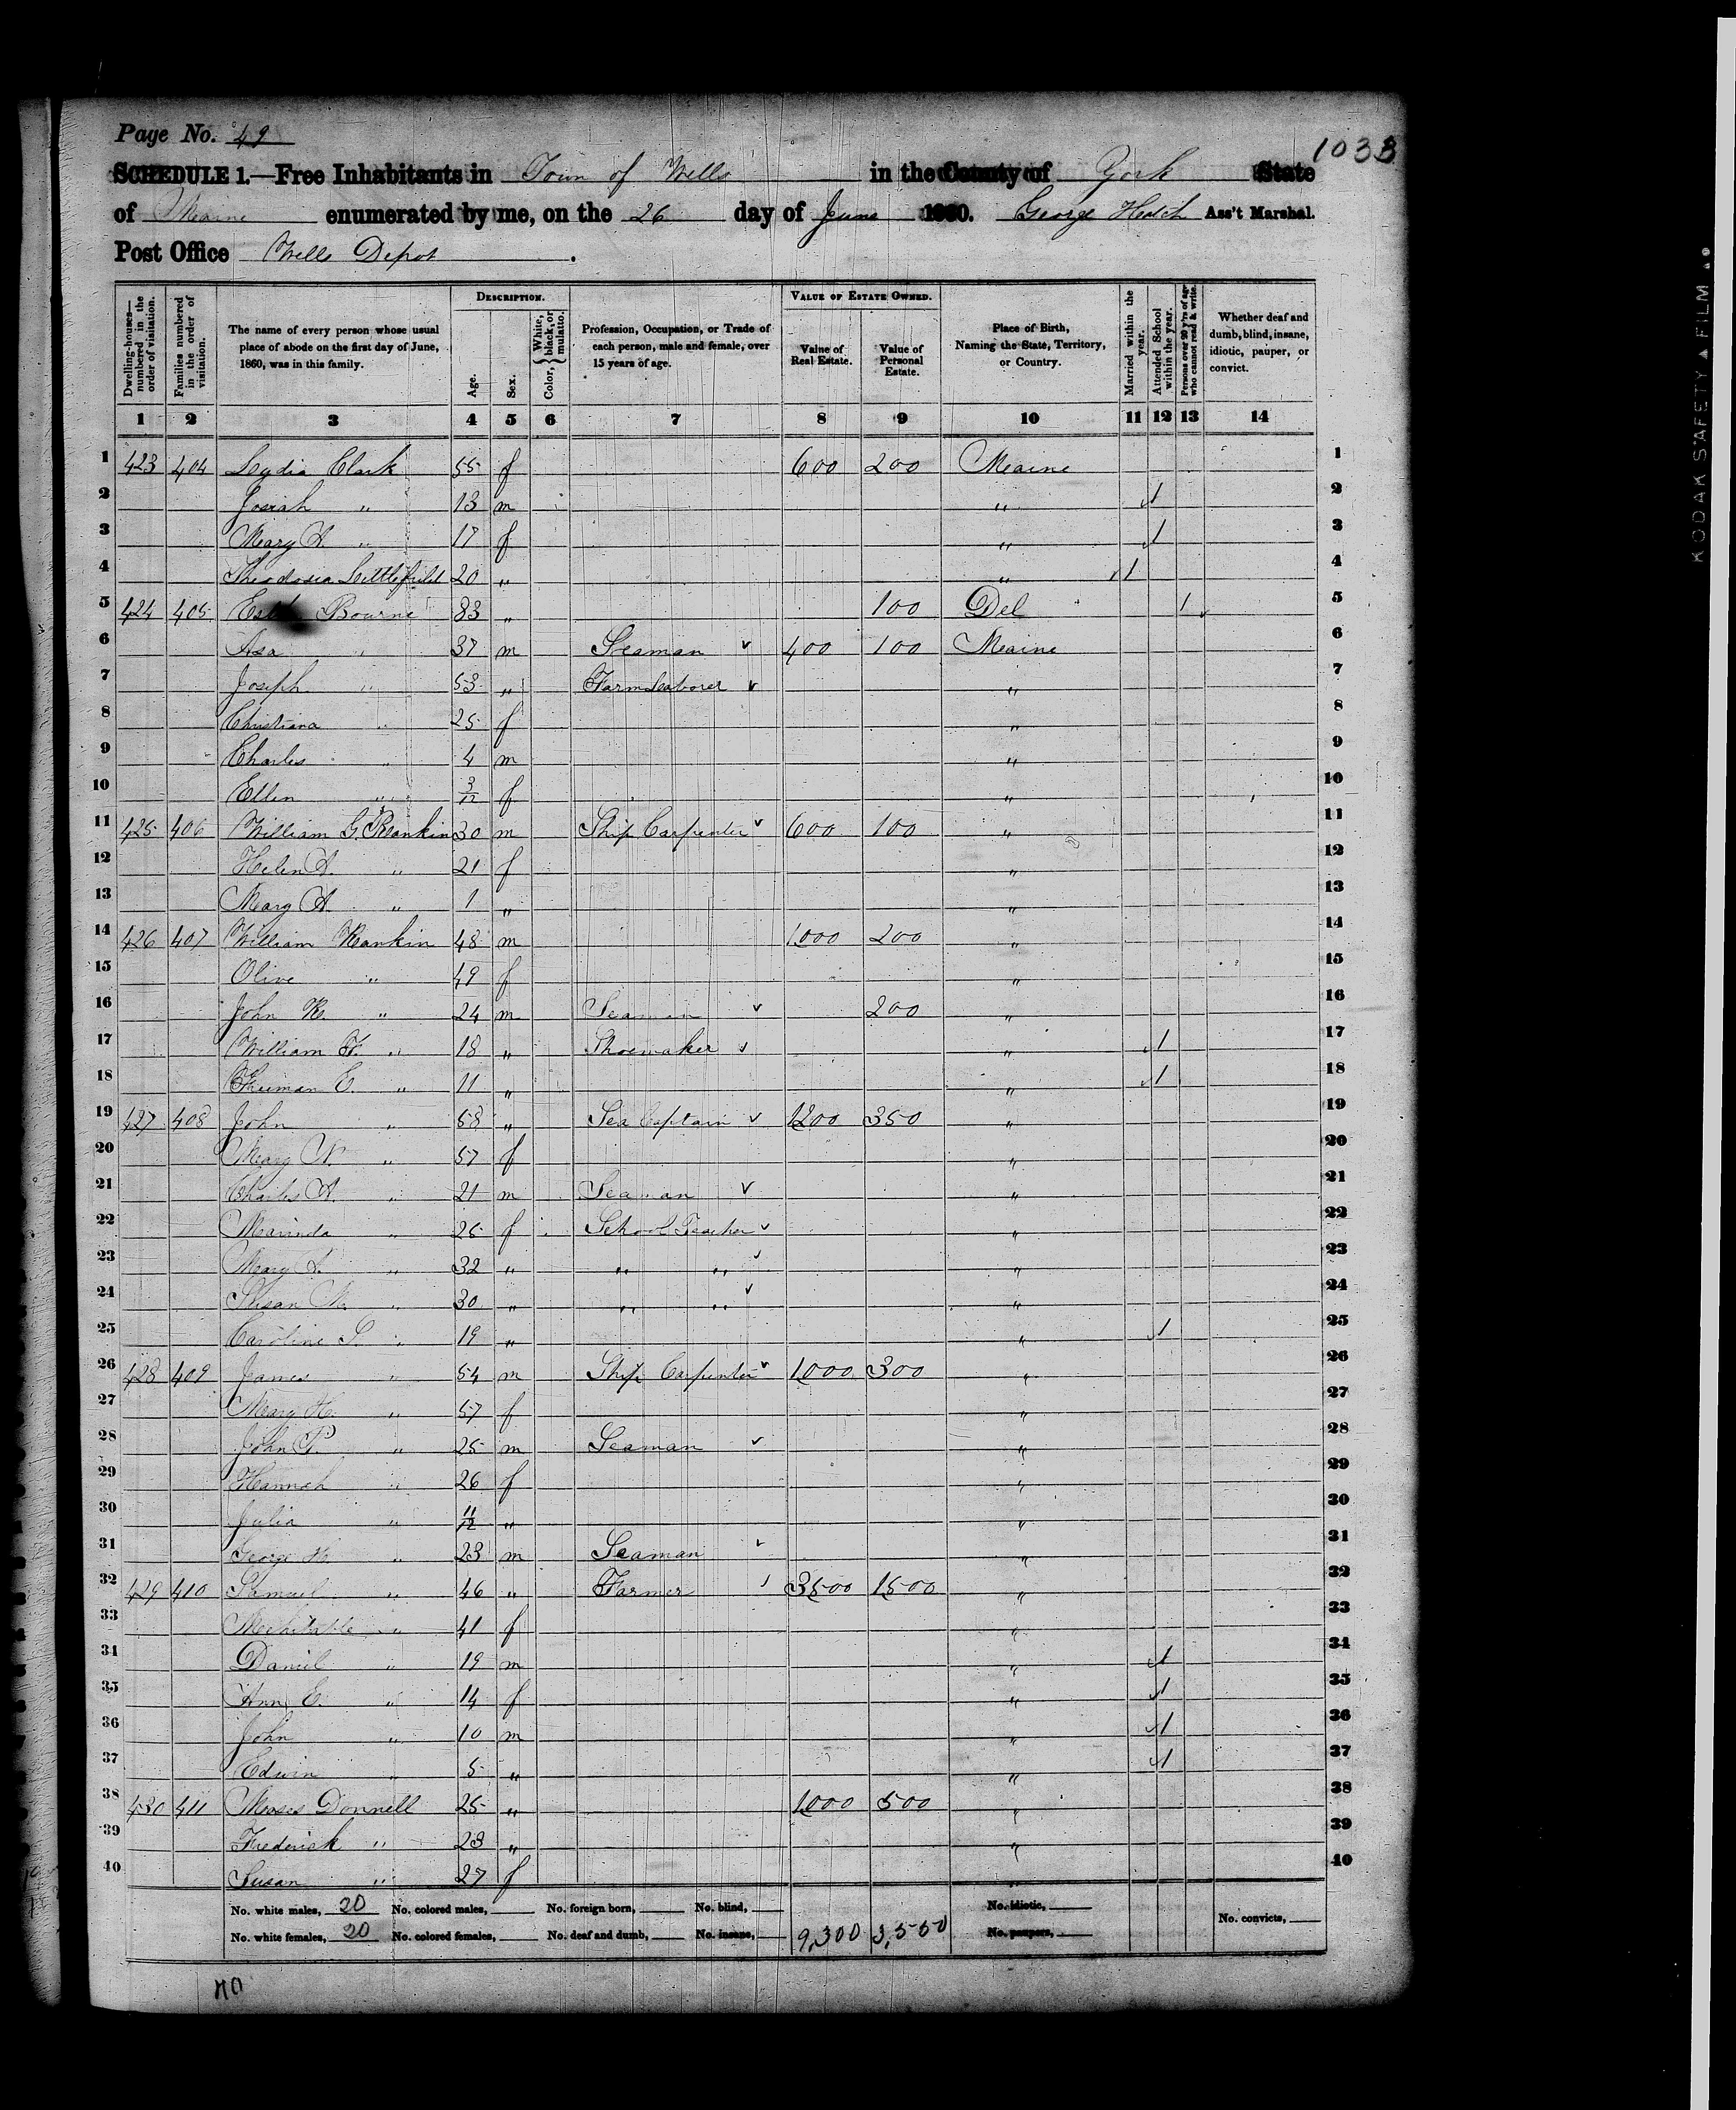 Page No. 49
1033
SCHEDULE 1.—Free Inhabitants in Town of Wells in the County of York State
of Maine enumerated by me, on the 26 day of June 1860. George Hatch Ass't Marshal.
Post Office Wells Depot.
Dwelling-houses—numbered in the order of visitation.
Families numbered in the order of visitation.
The name of every person whose usual place of abode on the first day of June, 1860, was in this family.
DESCRIPTION.
Age.
Sex.
Color, { White, black, or mulatto.
Profession, Occupation, or Trade of each person, male and female, over 15 years of age.
VALUE OF ESTATE OWNED.
Value of Real Estate.
Value of Personal Estate.
Place of Birth, Naming the State, Territory, or Country.
Married within the year.
Attended School within the year.
Persons over 20 y'rs of age who cannot read & write.
Whether deaf and dumb, blind, insane, idiotic, pauper, or convict.
1 2 3 4 5 6 7 8 9 10 11 12 13 14
1 423 404 Lydia Clark 55 f 600 200 Maine 1
2 Josiah " 13 m " 1 2
3 Mary A. " 17 f " 1 3
4 Theodosia Littlefield 20 " " 1 4
5 424 405 Bourne 83 " 100 Del 1 5
6 Asa " 37 m Seaman 400 100 Maine 6
7 Joseph " 53 " Farm Laborer " 7
8 Christiana " 25 f " 8
9 Charles " 4 m " 9
10 Ellen " 3/12 f " 10
11 425 406 William G. Rankin 30 m Ship Carpenter 600 100 " 11
12 Helen A. " 21 f " 12
13 Mary A. " 1 " " 13
14 426 407 William Rankin 48 m 1000 200 " 14
15 Olive " 49 f " 15
16 John R. " 24 m Seaman 200 " 16
17 William H. " 18 " Shoemaker " 1 17
18 Truman E. " 11 " " 1 18
19 427 408 John " 58 " Sea Captain 1200 350 " 19
20 Mary N. " 57 f " 20
21 Charles A. " 21 m Seaman " 21
22 Marinda " 25 f School Teacher " 22
23 Mary L. " 32 " " " " 23
24 Susan M. " 30 " " " " 24
25 Caroline S. " 19 " " 1 25
26 428 409 James " 54 m Ship Carpenter 1000 300 " 26
27 Mary H. " 57 f " 27
28 John P. " 25 m Seaman " 28
29 Hannah " 26 f " 29
30 Julia " 11/12 " " 30
31 George H. " 23 m Seaman " 31
32 429 410 Samuel " 46 " Farmer 3500 1500 " 32
33 Mehitable " 41 f " 33
34 Daniel " 19 m " 1 34
35 Ann E. " 14 f " 1 35
36 John " 10 m " 1 36
37 Edwin " 5 " " 1 37
38 430 411 Moses Donnell 25 " 1000 500 " 38
39 Frederick " 23 " " 39
40 Susan " 27 f " 40
No. white males, 20 No. colored males, No. foreign born, No. blind, No. idiotic,
No. white females, 20 No. colored females, No. deaf and dumb, No. insane, 9,300 3,550 No. paupers, No. convicts,
KODAK SAFETY ▲ FILM